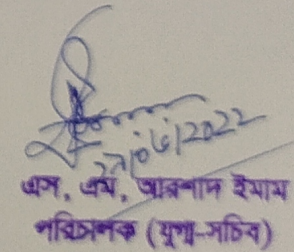 27/06/2022
এস, এম, আরশাদ ইমাম
পরিচালক (যুগ্ম-সচিব)